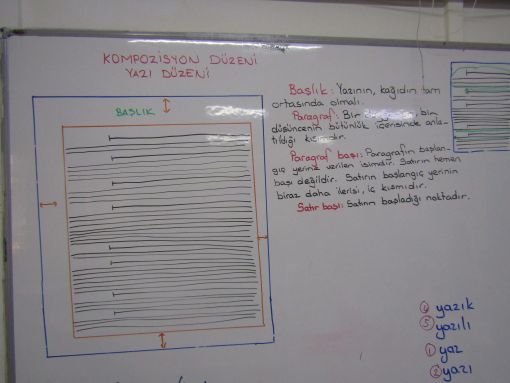 KOMPOZİSYON DÜZENİ
YAZI DÜZENİ
BAŞLIK
Başlık: Yazının, kağıdın tam
ortasında olmalı.
Paragraf: Bir bir
düşüncenin bütünlük içerisinde anla-
tıldığı kısımdır.
Paragraf başı: Paragrafın başlan-
gıç yerine verilen isimdir. Satırın hemen
başı değildir. Satırın başlangıç yerinin
biraz daha ilerisi, iç kısmıdır.
Satır başı: Satırın başladığı noktadır.
4 yazık
5 yazılı
1 yaz
2 yazı